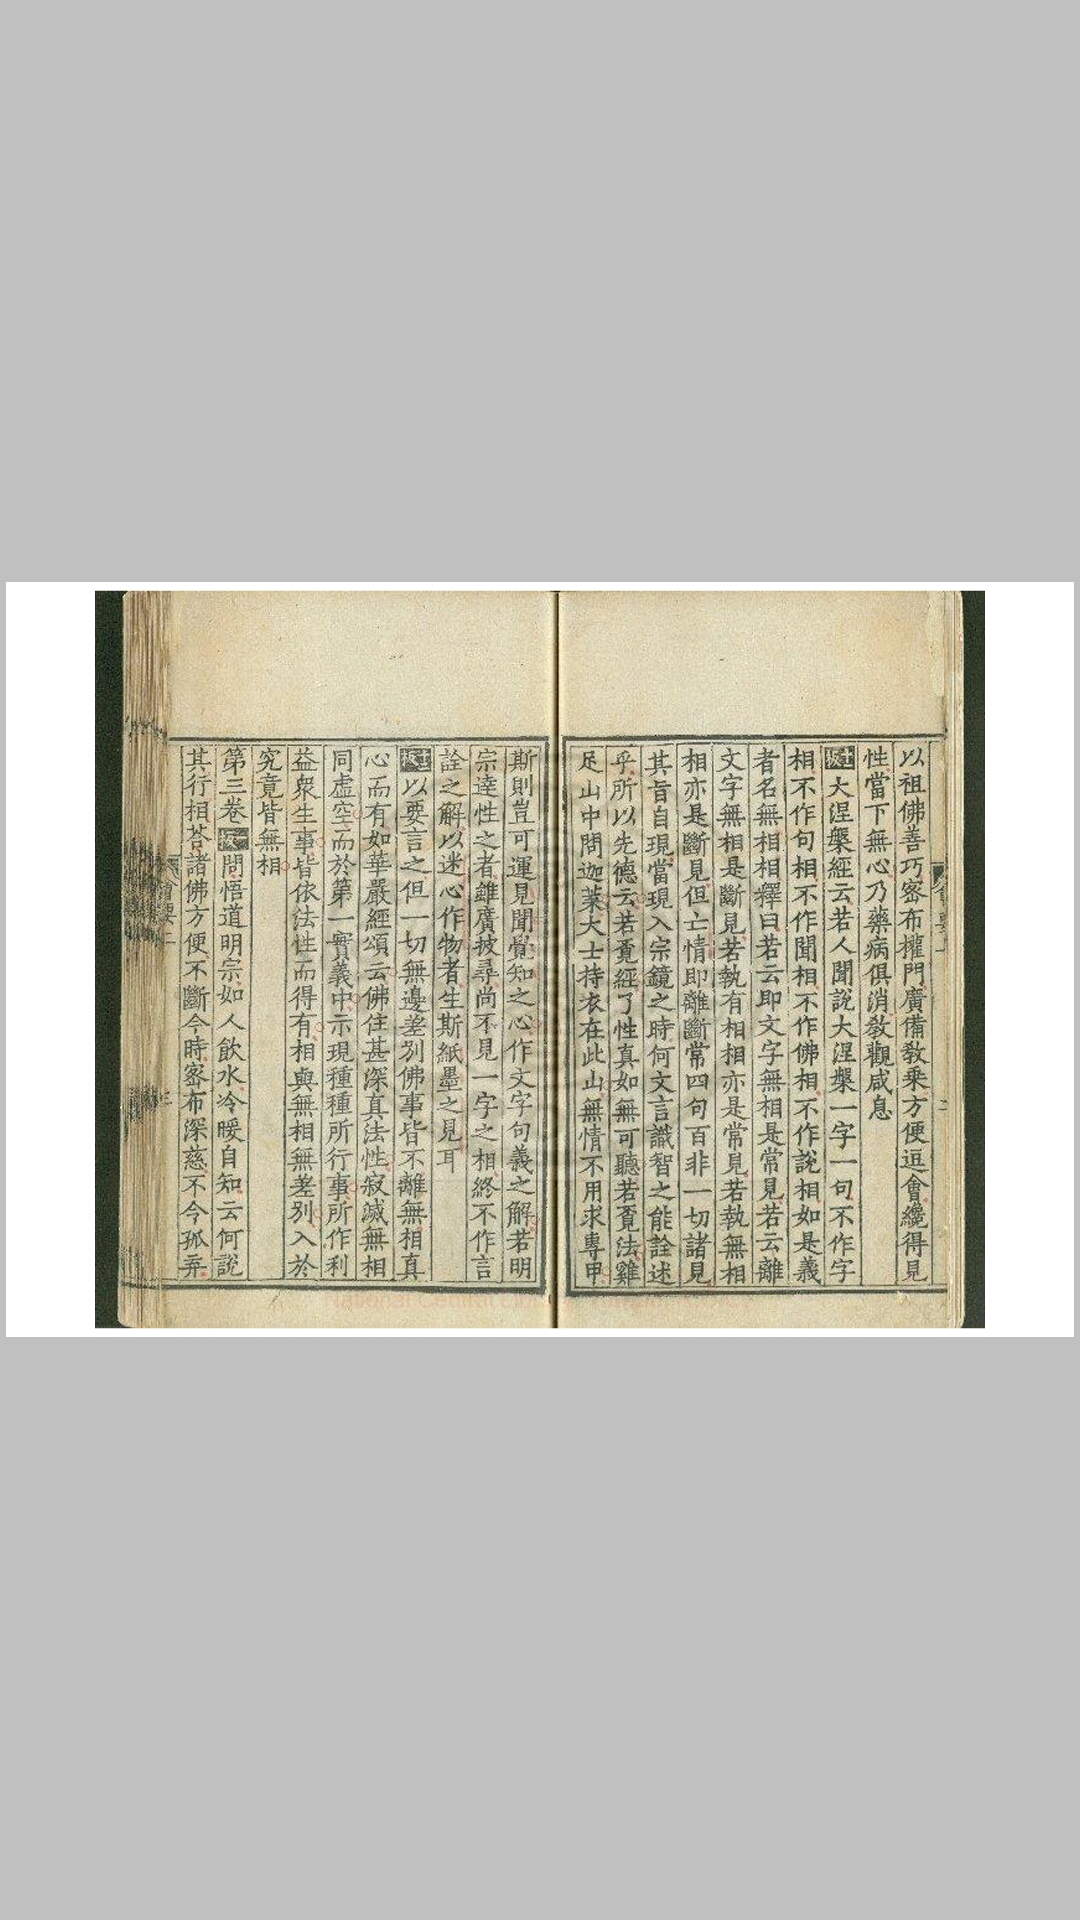 以祖佛善巧密布權門廣備教乗方便逗會纔得見
性當下無心乃藥病俱消教觀咸息
十板大涅槃經云若人聞說大涅槃一字一句不作字
相不作句相不作聞相不作佛相不作說相如是義
者名無相相釋曰若云即文字無相是常見若云離
文字無相是斷見若執有相相亦是常見若執無相
相亦是斷見但亡情即離斷常四句百非一切諸見
其旨自現當現入宗鏡之時何文言識智之能詮述
乎所以先德云若覔經了性真如無可聽若覔法雞
足山中問迦葉大士持衣在此山無情不用求專甲
斯則豈可運見聞覺知之心作文字句義之解若明
宗達性之者雖廣披尋尚不見一字之相終不作言
詮之解以迷心作物者生斯紙墨之見耳
以要言之但一切無邊差別佛事皆不離無相真
心而有如華嚴經頌云佛住甚深真法性寂滅無相
同虛空而於第一實義中示現種種所行事所作利
益衆生事皆依法性而得有相與無相無差別入於
究竟皆無相
第三卷 問悟道明宗如人飲水冷暖自知云何說
其行相荅諸佛方便不斷今時密布深慈不令孤弃
會要二